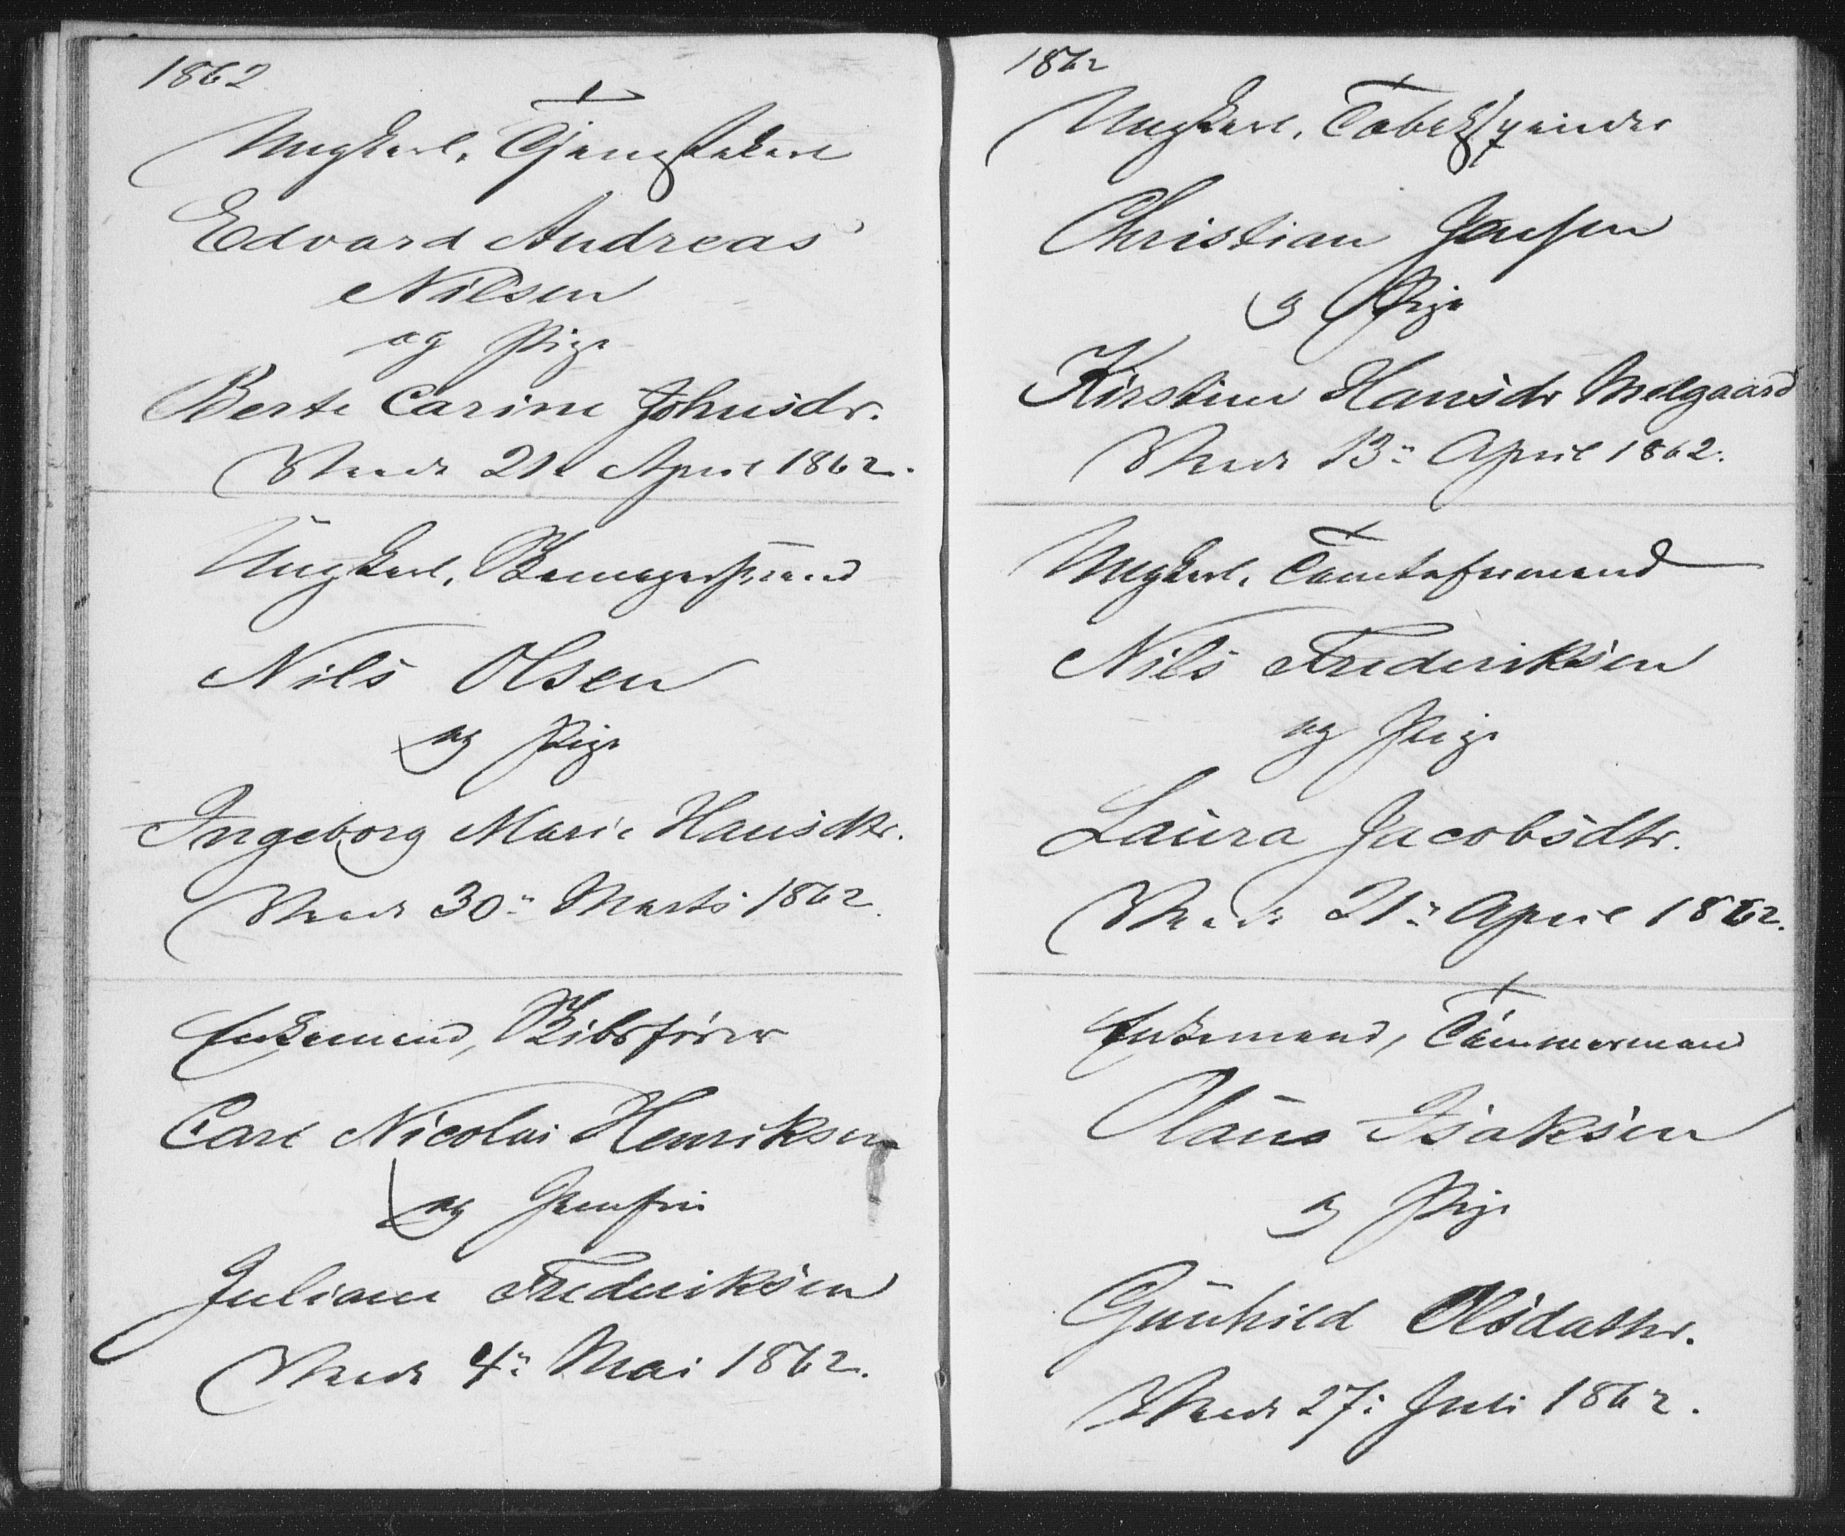 1862
Ungkarl, Tjenestekarl
Edvard Andreas
Nilsen
og Pige
Berte Carine Johnsdr.
Viede 21de April 1862.
Ungkarl, Skomagersvend
Nils Olsen
og Pige
Ingeborg Marie Hansdtr.
Viede 30" Marts 1862.
Enkemand, Skibsfører
Carl Nicolai Henriksen
og Jomfru
Juliane Frederiksen
Viede 4" Mai 1862.
1862
Ungkarl, Tobakspinder
Christian Jensen
og Pige
Kirstine Hansdr Melgaard
Viede 13" April 1862.
Ungkarl, Tomtefremand
Nils Frederiksen
og Pige
Laura Jacobsdtr.
Viede 21" April 1862.
Enkemand, Tømmermand
Olaus Isaksen
og Pige
Gunhild Olsdatter.
Viede 27" Juli 1862.